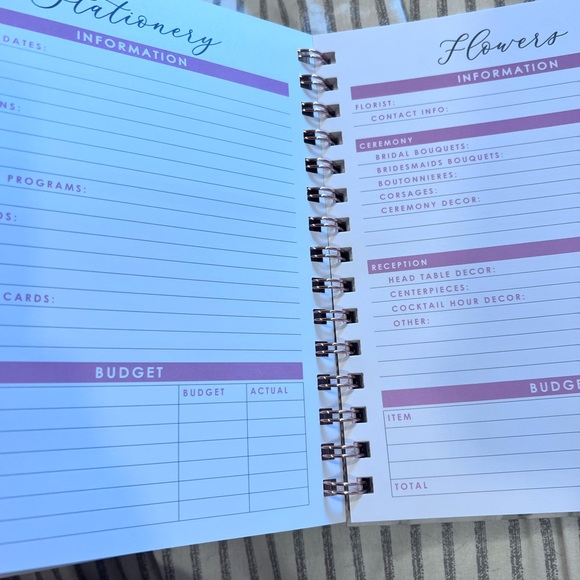 Stationery
INFORMATION
DATES:
NS:
PROGRAMS:
DS:
CARDS:
BUDGET
BUDGET ACTUAL
Flowers
INFORMATION
FLORIST:
CONTACT INFO:
CEREMONY
BRIDAL BOUQUETS:
BRIDESMAIDS BOUQUETS:
BOUTONNIERES:
CORSAGES:
CEREMONY DECOR:
RECEPTION
HEAD TABLE DECOR:
CENTERPIECES:
COCKTAIL HOUR DECOR:
OTHER:
BUDGE
ITEM
TOTAL